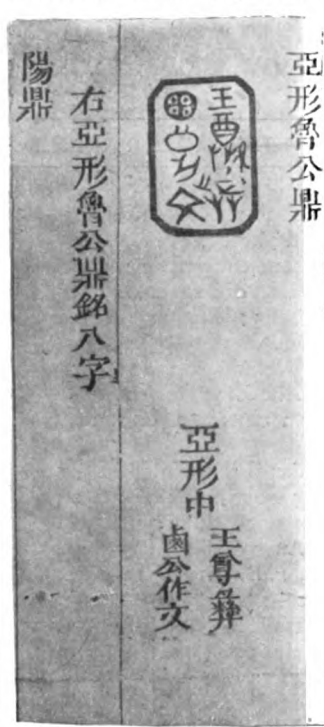 亞形魯公鼎
亞形中
王尊彝
鹵公作文
右亞形魯公鼎銘八字
陽鼎